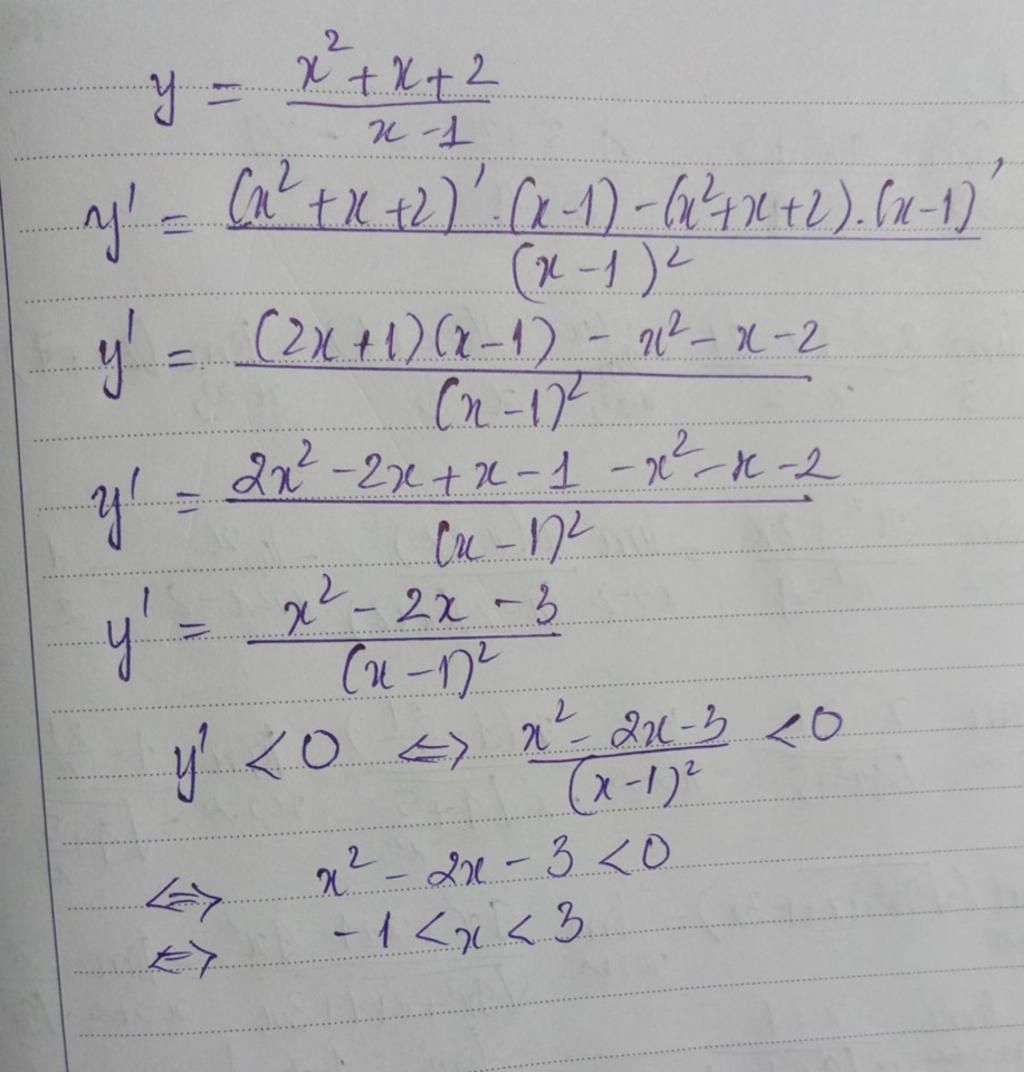 y = (x² + x + 2)/(x - 1)
y' = ((x² + x + 2)' . (x - 1) - (x² + x + 2) . (x - 1)')/(x - 1)²
y' = ((2x + 1)(x - 1) - x² - x - 2)/(x - 1)²
y' = (2x² - 2x + x - 1 - x² - x - 2)/(x - 1)²
y' = (x² - 2x - 3)/(x - 1)²
y' < 0 ⇔ (x² - 2x - 3)/(x - 1)² < 0
⇔ x² - 2x - 3 < 0
⇔ -1 < x < 3